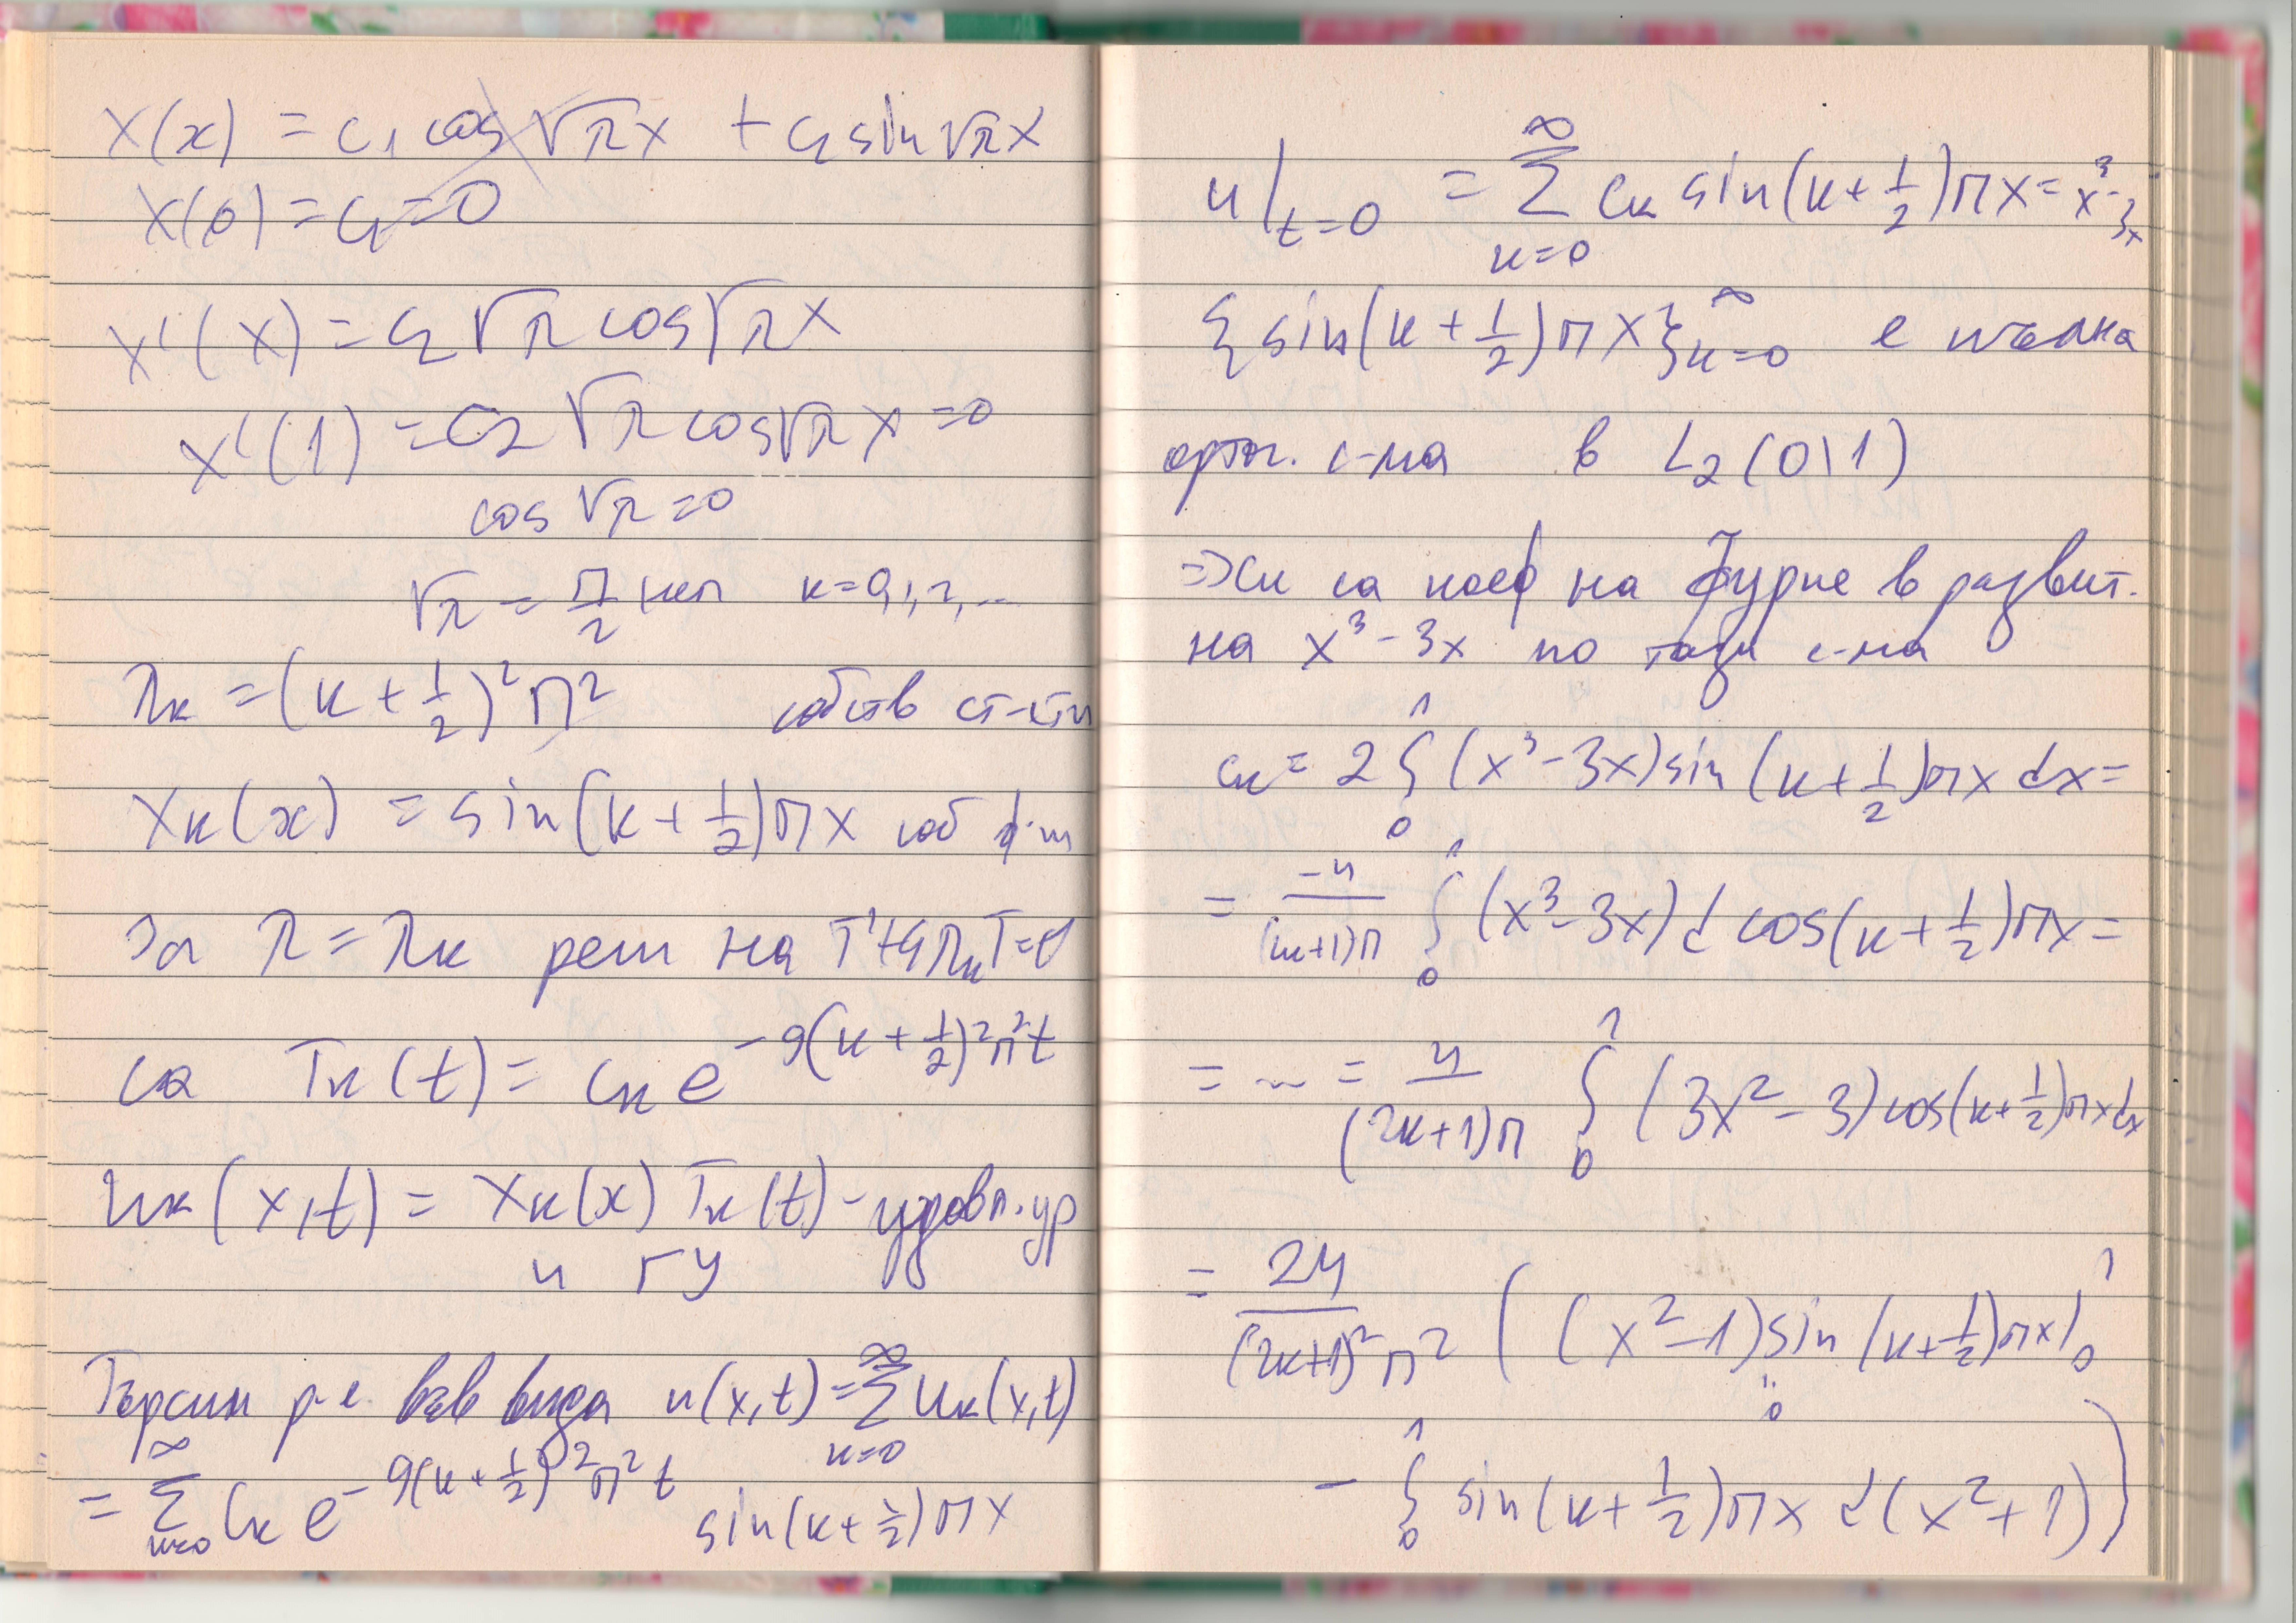 X(x) = c₁ cos √λ x + c₂ sin √λ x
X(0) = c₁ = 0
X'(x) = c₂ √λ cos √λ x
X'(1) = c₂ √λ cos √λ x = 0
cos √λ = 0
√λ = π/2 + kπ k = 0,1,2,...
λₖ = (k + 1/2)² π² собств ст-сти
Xₖ(x) = sin(k + 1/2)πx соб ф-ии
За λ = λₖ реш на T' + 9λₖT = 0
са Tₖ(t) = cₖ e^{-9(k + 1/2)²π²t}
uₖ(x,t) = Xₖ(x) Tₖ(t) - удовл. ур
и ГУ
Търсим р-е във вида u(x,t) = ∑_{k=0}^{∞} uₖ(x,t)
= ∑_{k=0}^{∞} cₖ e^{-9(k + 1/2)²π²t} sin(k + 1/2)πx
u|_{t=0} = ∑_{k=0}^{∞} cₖ sin(k + 1/2)πx = x³ - 3x
{sin(k + 1/2)πx}_{k=0}^{∞} е пълна
ортог. с-ма в L₂(0,1)
=> cₖ са коеф на Фурие в развит.
на x³ - 3x по тази с-ма
cₖ = 2 ∫₀¹ (x³ - 3x) sin(k + 1/2)πx dx =
= -4/((2k+1)π) ∫₀¹ (x³ - 3x) d cos(k + 1/2)πx =
= ... = 4/((2k+1)π) ∫₀¹ (3x² - 3) cos(k + 1/2)πx dx
= 24/((2k+1)²π²) ( (x² - 1) sin(k + 1/2)πx |₀¹
0
- ∫₀¹ sin(k + 1/2)πx d(x² + 1) )